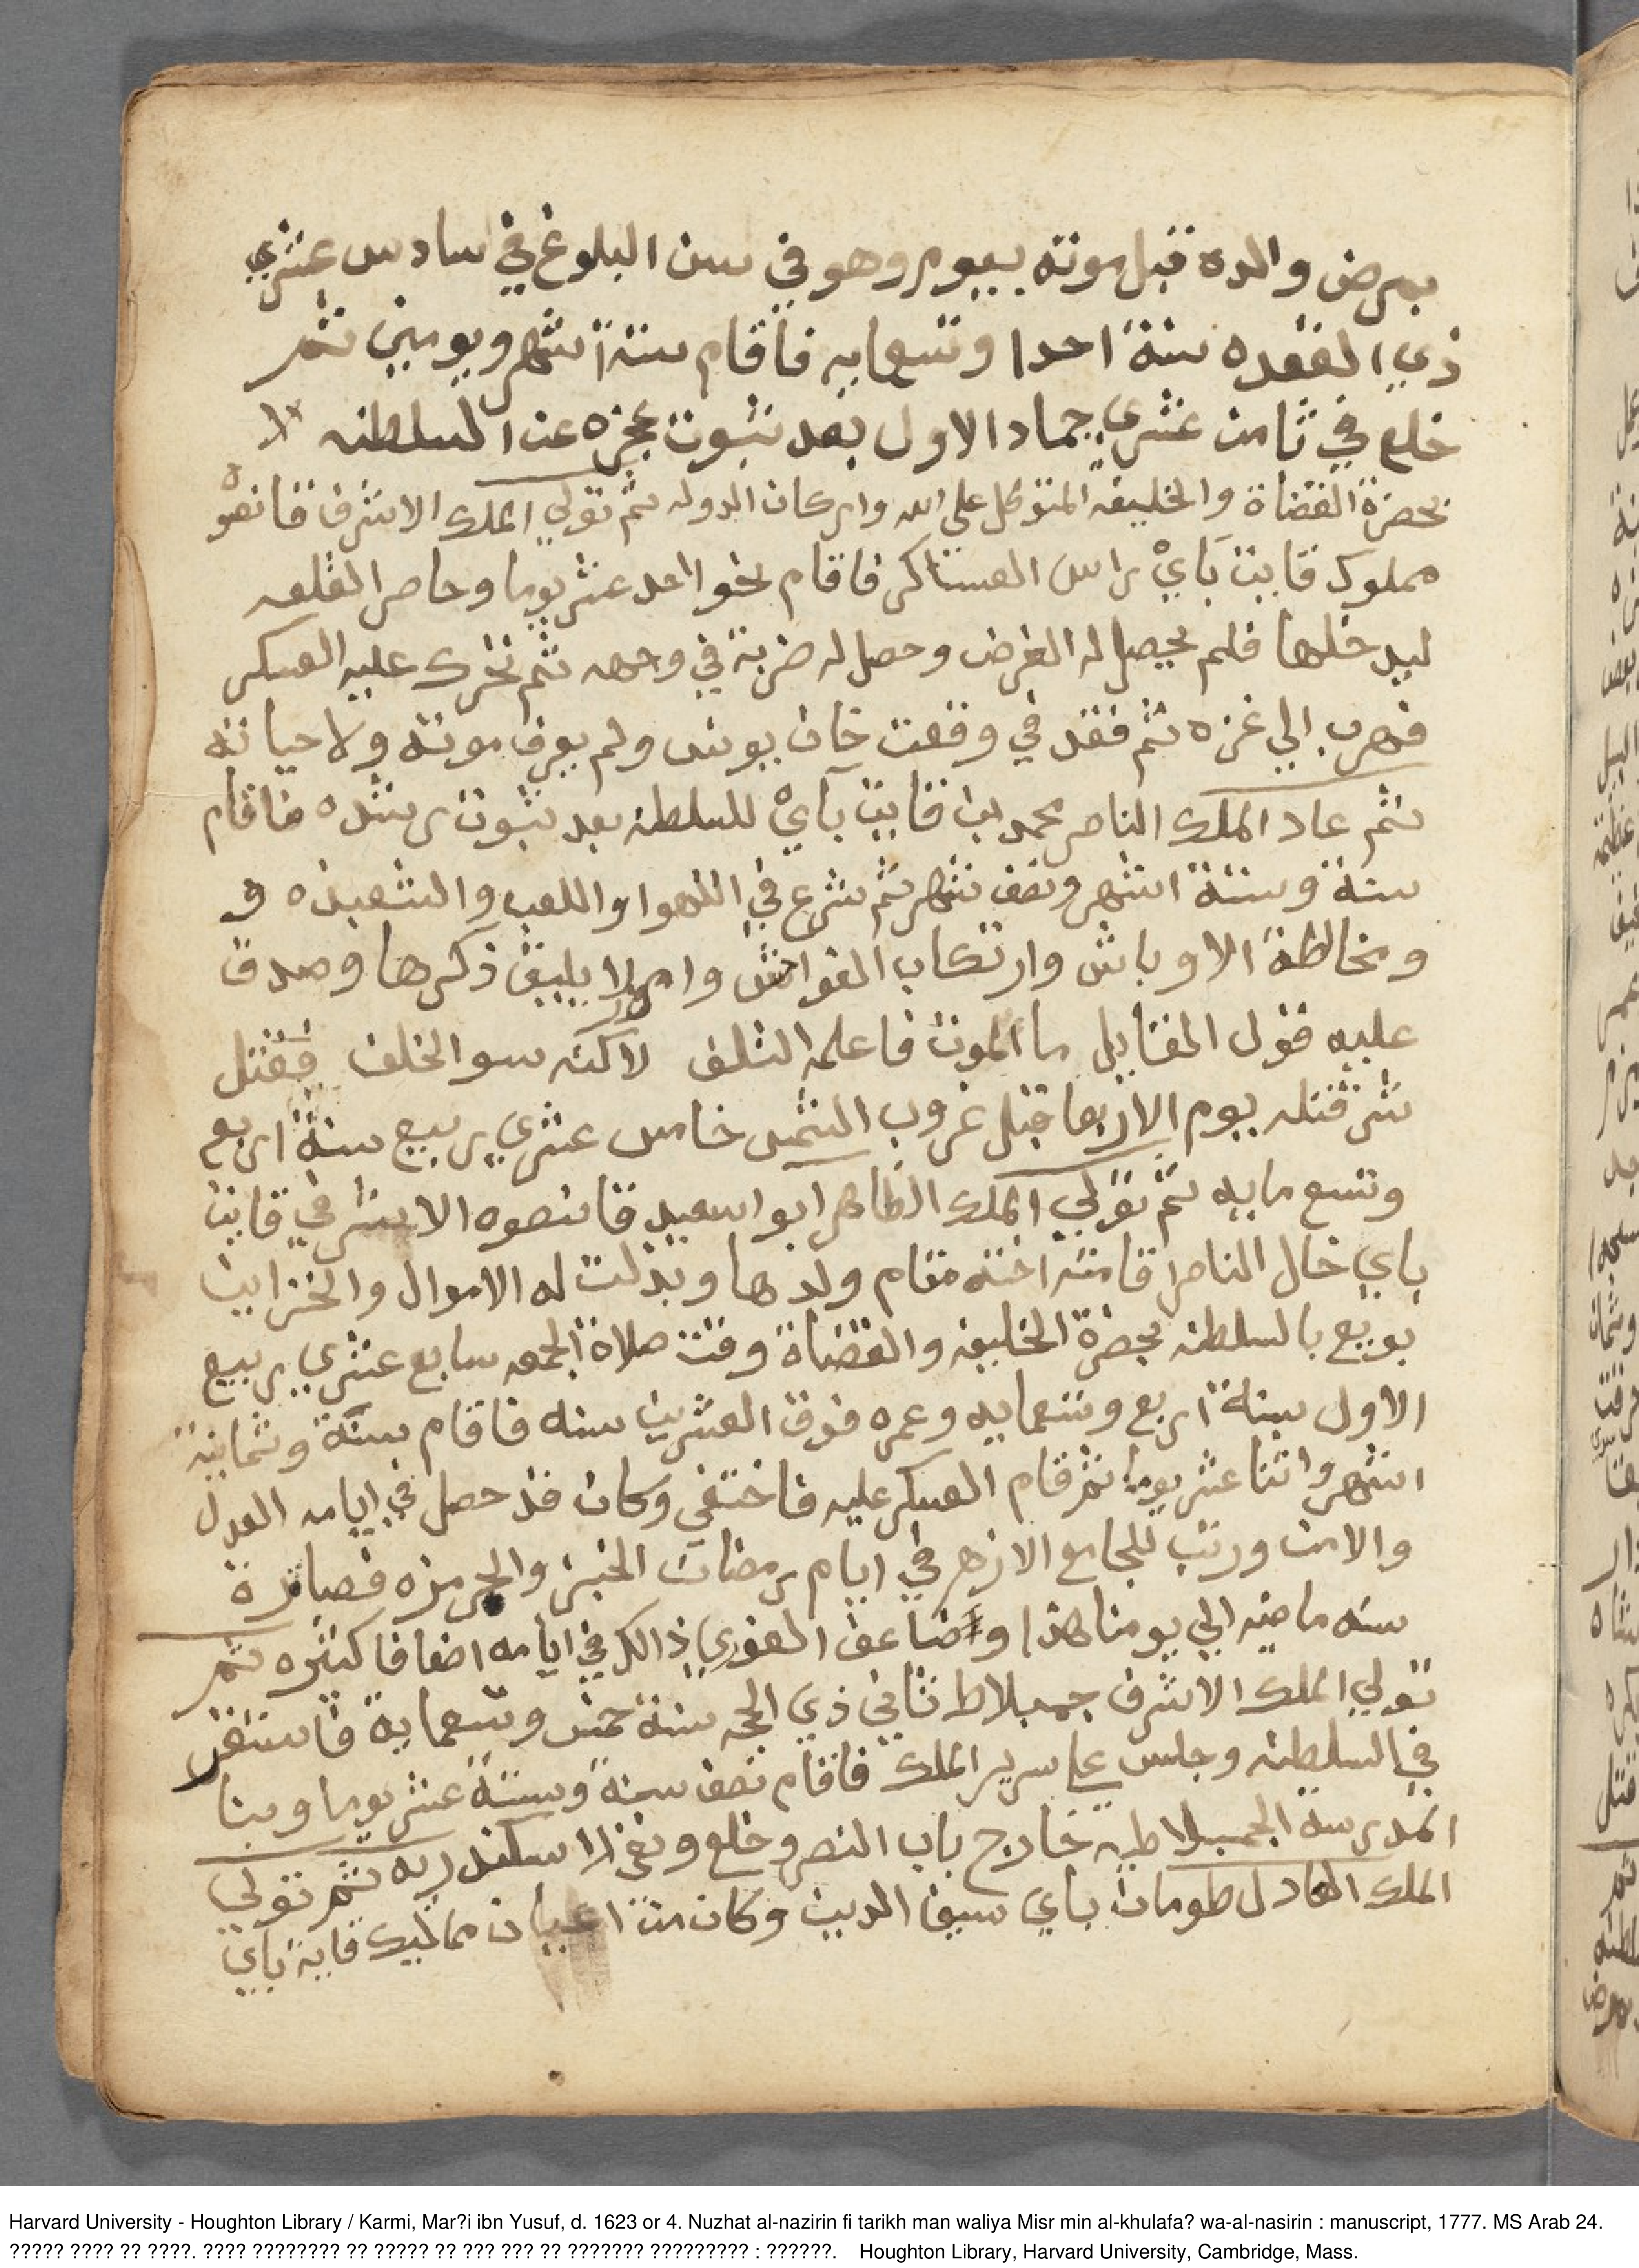 بمرض والده قبل موته بيوم وهو في سن البلوغ في سادس عشري
ذي القعده سنة احدا وتسعمايه فاقام ستة اشهر ويومين ثم
خلع في ثامن عشري جماد الاول بعد ثبوت عجزه عن السلطنه لا
بحضرة القضاة والخليفه المتوكل على الله واركان الدوله ثم تولي الملك الاشرف قانصوه
مملوك قايت باي راس العساكر فاقام نحو احد عشر يوما وحاصر القلعه
ليدخلها فلم يحصل له الغرض وحصل له ضربة في وجهه ثم تحرك عليه العسكر
فهرب الي غزه ثم فقد في وقعت خان يونس ولم يعرف موته ولا حياته
ثم عاد الملك الناصر محمد بن قايت باي للسلطنه بعد ثبوت رشده فاقام
سنة وستة اشهر ونصف شهر ثم شرع في اللهوا واللعب والشعبذه و
ومخالطة الاوباش وارتكاب الفواحش وامور لا يليق ذكرها وصدق
عليه قول القايل ما الموت فاعلمه التلف لاكنه سو الخلف فقتل
شر قتله يوم الاربعا قبل غروب الشمس خامس عشري ربيع سنة اربع
وتسع مايه ثم تولي الملك الظاهر ابوا سعيد قانصوه الاشرفي قايت
باي خال الناصر اقامته اخته مقام ولدها وبذلت له الاموال والخزاين
بويع بالسلطنه بحضرة الخليفه والقضاة وقت صلاة الجمعه سابع عشري ربيع
الاول سنة اربع وتسعمايه وعمره فوق العشرين سنه فاقام سنة وثمانية
اشهر واثنا عشر يوما ثم قام العسكر عليه فاختفي وكان قد حصل في ايامه العدل
والامن ورتب للجامع الازهر في ايام رمضان الخبز والحرمزه فصارة
سنه ماضيه الي يومنا هذا وضاعف الغوري ذالك في ايامه اضعافا كثيره ثم
تولي الملك الاشرف جمبلاط ثاني ذي الحجه سنة خمس وتسعماية فاستقر
في السلطنه وجلس علي سرير الملك فاقام نصف سنة وستة عشر يوما وبنا
المدرسة الجمبلاطيه خارج باب النصر وخلع ونفي الاسكندريه ثم تولي
الملك العادل طومان باي سيف الدين وكان من اعيان مماليك قاية باي
Harvard University - Houghton Library / Karmi, Mar?i ibn Yusuf, d. 1623 or 4. Nuzhat al-nazirin fi tarikh man waliya Misr min al-khulafa? wa-al-nasirin : manuscript, 1777. MS Arab 24.
????? ???? ?? ????. ???? ???????? ?? ????? ?? ??? ??? ?? ??????? ????????? : ??????. Houghton Library, Harvard University, Cambridge, Mass.